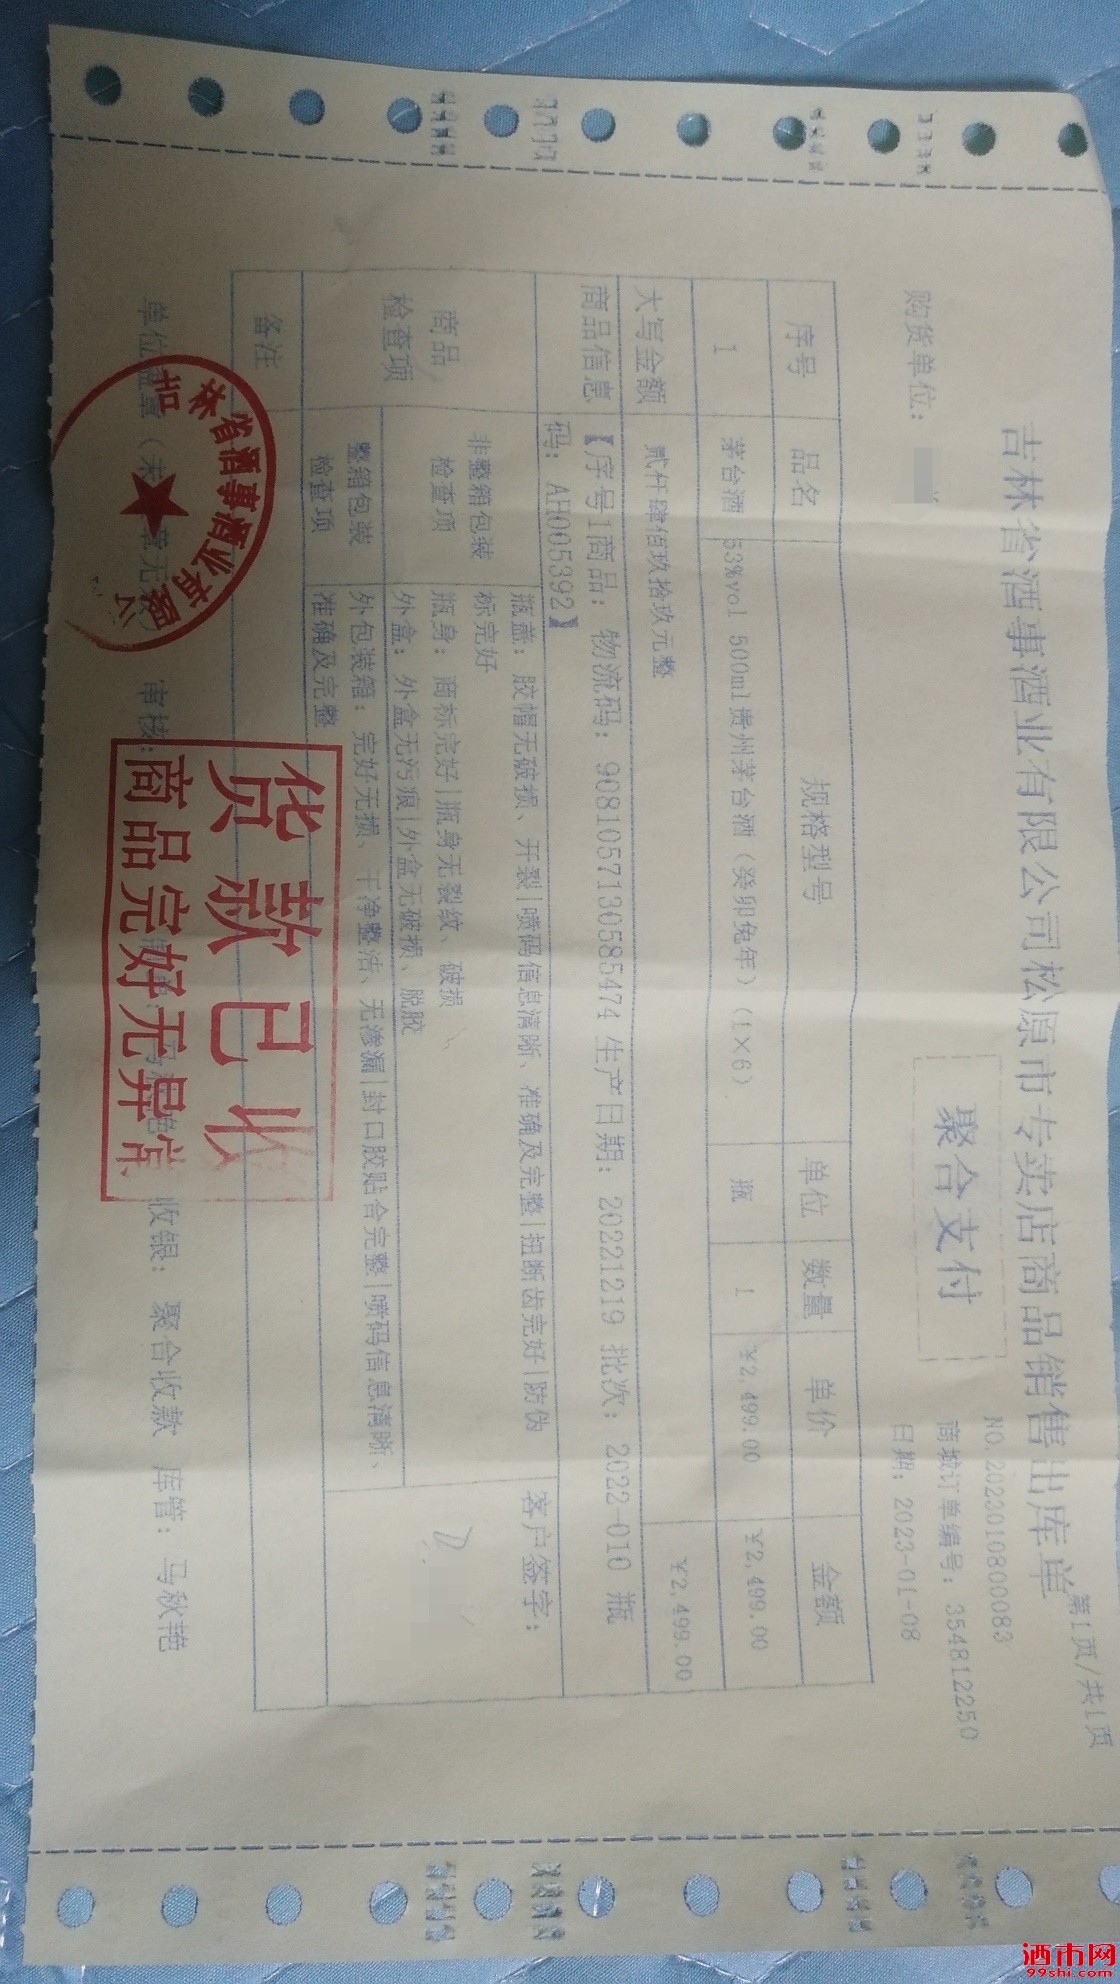 第1页/共1页
吉林省酒事酒业有限公司松原市专卖店商品销售出库单
NO.2023010800083
聚合支付
商城订单编号：354812250
购货单位：
日期：2023-01-08
序号 品名 规格型号 单位 数量 单价 金额
1 茅台酒 53%vol 500ml贵州茅台酒（癸卯兔年）（1×6） 瓶 1 ¥2,499.00 ¥2,499.00
大写金额 贰仟肆佰玖拾玖元整 ¥2,499.00
商品信息 【序号1商品：物流码：9081057130585474 生产日期：20221219 批次：2022-010 瓶
码：AH005392】
商品
检查项
非整箱包装
检查项
瓶盖：胶帽无破损、开裂|喷码信息清晰、准确及完整|扭断齿完好|防伪
标完好
瓶身：商标完好|瓶身无裂纹、破损
外盒：外盒无污痕|外盒无破损、脱胶
整箱包装
检查项
外包装箱：完好无损、干净整洁、无渗漏|封口胶贴合完整|喷码信息清晰、
准确及完整
客户签字：
备注
单位盖章（未 章无效） 审核： 收银：聚合收款 库管：马秋艳
吉林省酒事酒业有限公
货款已收
商品完好无异常
酒市网
99shi.com